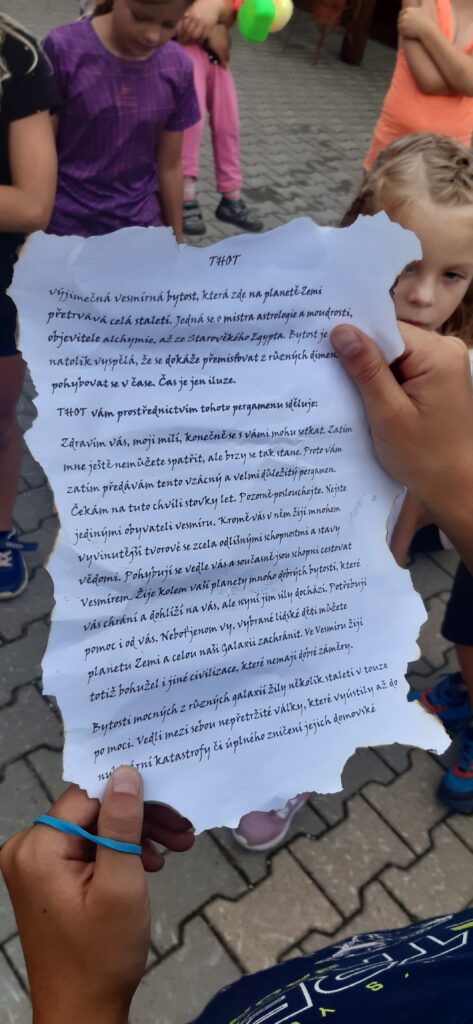 THOT
výjimečná vesmírná bytost, která zde na planetě Zemi
přetrvává celá staletí. Jedná se o mistra astrologie a moudrosti,
objevitele alchymie, až ze Starověkého Egypta. Bytost je
natolik vyspělá, že se dokáže přemisťovat z různých dimen
pohybovat se v čase. Čas je jen iluze.
THOT vám prostřednictvím tohoto pergamenu sděluje:
Zdravím vás, moji milí, konečně se s vámi mohu setkat. Zatím
mne ještě nemůžete spatřit, ale brzy se tak stane. Proto vám
zatím předávám tento vzácný a velmi důležitý pergamen.
Čekám na tuto chvíli stovky let. Pozorně poslouchejte. Nejste
jedinými obyvateli vesmíru. Kromě vás v něm žijí mnohem
vyvinutější tvorové se zcela odlišnými schopnotmi a stavy
vědomí. Pohybují se vedle vás a současně jsou schopni cestovat
Vesmírem. Žije kolem vaší planety mnoho dobrých bytostí, které
vás chrání a dohlíží na vás, ale nyní jim síly dochází. Potřebují
pomoc i od vás. Neboť jenom vy, vybrané lidské děti můžete
planetu Zemi a celou naši galaxii zachránit. Ve Vesmíru žijí
totiž bohužel i jiné civilizace, které nemají dobré záměry.
Bytosti mocných z různých galaxií žily několik staletí v touze
po moci. Vedli mezi sebou nepřetržité války, které vyústily až do
katastrofy či úplného zničení jejich domovské